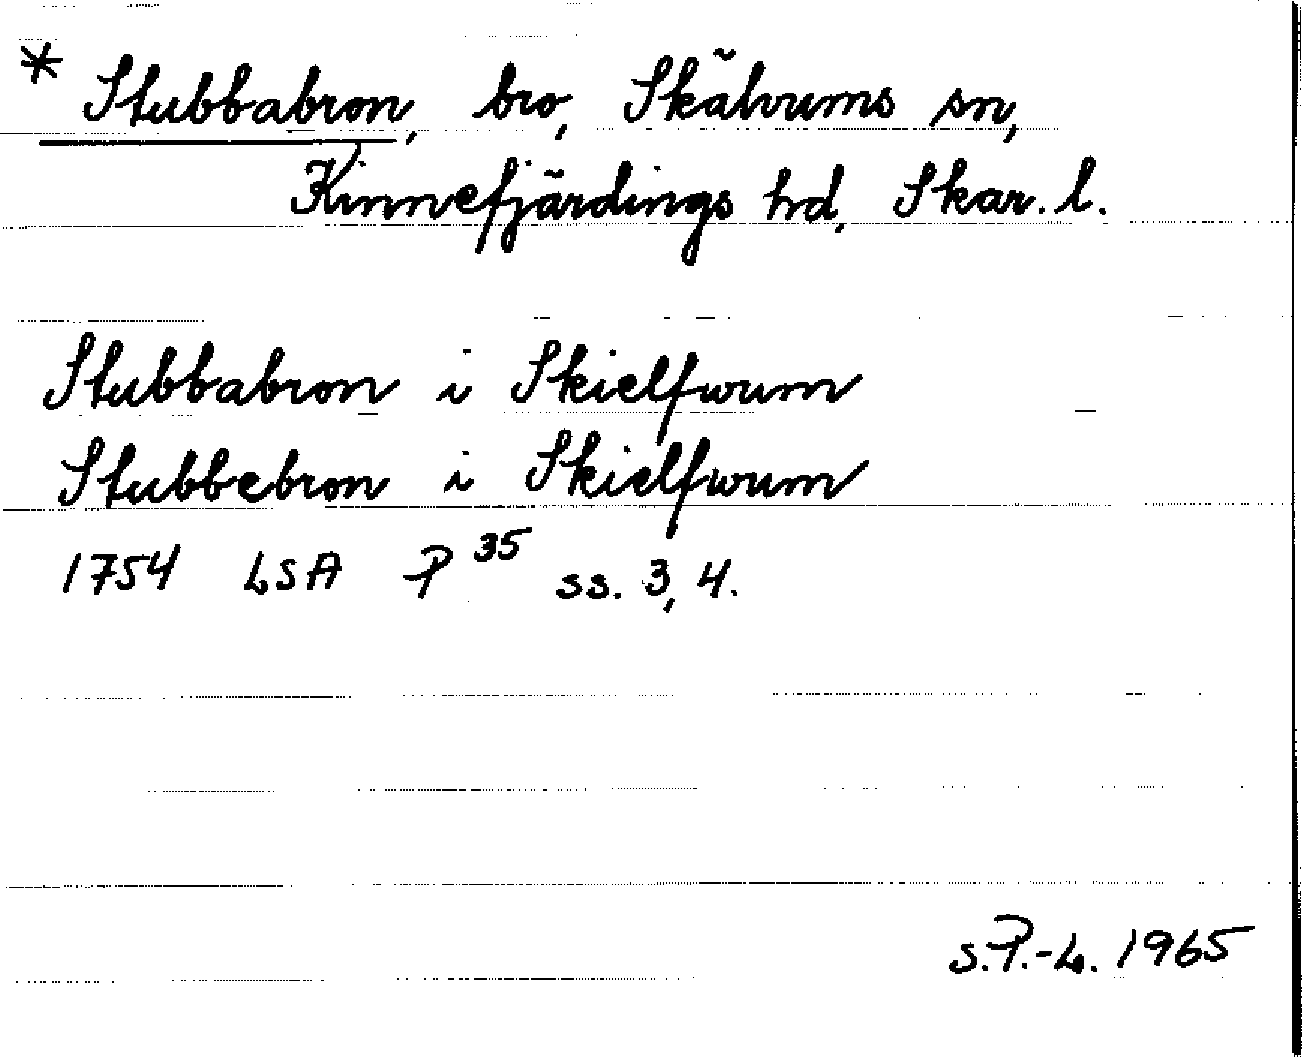 * Stubbabron, bro, Skälvums sn,
Kinnefjärdings hd, Skar. l.
Stubbabron i Skielfwum
Stubbebron i Skielfwum
1754 LSA P 35 ss. 3, 4.
S.P.-L. 1965